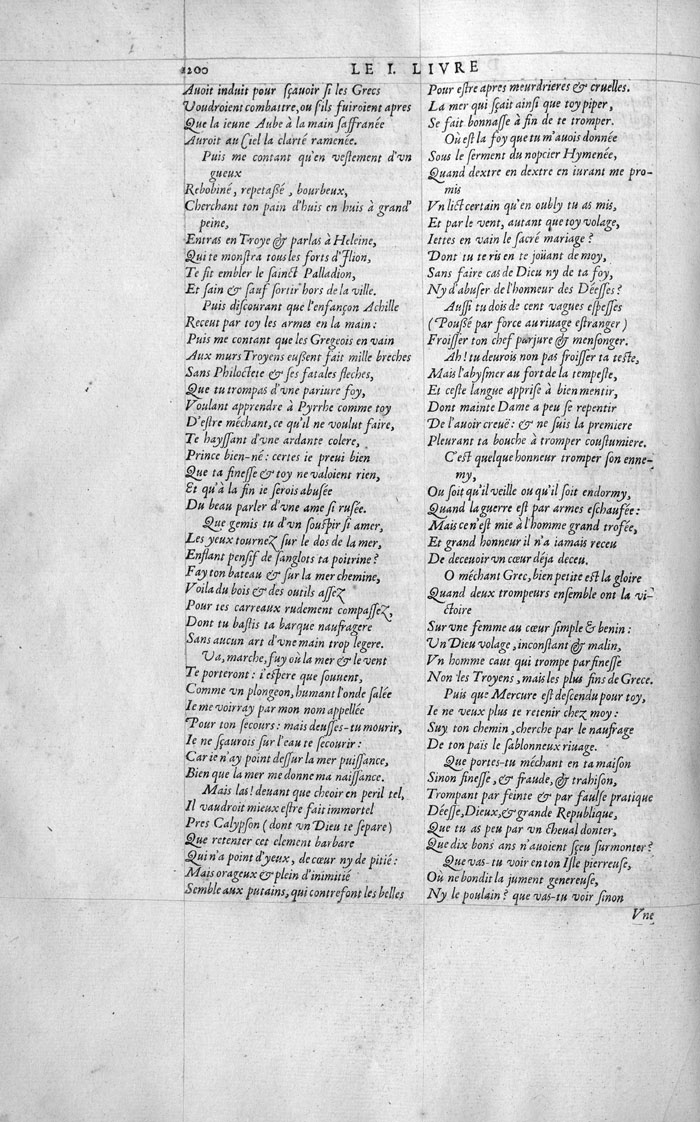 1200
LE I. LIVRE
Auoit induit pour sçauoir si les Grecs
Voudroient combattre, ou s'ils fuiroient apres
Que la ieune Aube à la main saffranée
Auroit au Ciel la clarté ramenée.
Puis me contant qu'en vestement d'vn
gueux
Rebobiné, repetassé, bourbeux,
Cherchant ton pain d'huis en huis à grand'
peine,
Entras en Troye & parlas à Heleine,
Qui te monstra tous les forts d'Ilion,
Te fit embler le sainct Palladion,
Et sain & sauf sortir hors de la ville.
Puis discourant que l'enfançon Achille
Receut par toy les armes en la main:
Puis me contant que les Gregeois en vain
Aux murs Troyens eussent fait mille breches
Sans Philoctete & ses fatales fleches,
Que tu trompas d'vne pariure foy,
Voulant apprendre à Pyrrhe comme toy
D'estre méchant, ce qu'il ne voulut faire,
Te hayssant d'vne ardante colere,
Prince bien-né: certes ie preui bien
Que ta finesse & toy ne valoient rien,
Et qu'à la fin ie serois abusée
Du beau parler d'vne ame si rusée.
Que gemis tu d'vn souspir si amer,
Les yeux tournez sur le dos de la mer,
Enflant pensif de sanglots ta poitrine?
Fay ton bateau & sur la mer chemine,
Voila du bois & des outils assez
Pour tes carreaux rudement compassez,
Dont tu bastis ta barque naufragere
Sans aucun art d'vne main trop legere.
Va, marche, fuy où la mer & le vent
Te porteront: i'espere que souuent,
Comme vn plongeon, humant l'onde salée
Ie me voirray par mon nom appellée
Pour ton secours: mais deusses-tu mourir,
Ie ne sçaurois sur l'eau te secourir:
Car ie n'ay point dessur la mer puissance,
Bien que la mer me donne ma naissance.
Mais las! deuant que cheoir en peril tel,
Il vaudroit mieux estre fait immortel
Pres Calypson (dont vn Dieu te separe)
Que retenter cet element barbare
Qui n'a point d'yeux, de cœur ny de pitié:
Mais orageux & plein d'inimitié
Semble aux putains, qui contrefont les belles
Pour estre apres meurdrieres & cruelles.
La mer qui sçait ainsi que toy piper,
Se fait bonnasse à fin de te tromper.
Où est la foy que tu m'auois donnée
Sous le serment du nopcier Hymenée,
Quand dextre en dextre en iurant me pro-
mis
Vn lict certain qu'en oubly tu as mis,
Et par le vent, autant que toy volage,
Iettes en vain le sacré mariage?
Dont tu te ris en te joüant de moy,
Sans faire cas de Dieu ny de ta foy,
Ny d'abuser de l'honneur des Déesses?
Aussi tu dois de cent vagues espesses
(Poussé par force au riuage estranger)
Froisser ton chef parjure & mensonger.
Ah! tu deurois non pas froisser ta teste,
Mais l'abysmer au fort de la tempeste,
Et ceste langue apprise à bien mentir,
Dont mainte Dame a peu se repentir
De l'auoir creuë: & ne suis la premiere
Pleurant ta bouche à tromper coustumiere.
C'est quelque honneur tromper son enne-
my,
Ou soit qu'il veille ou qu'il soit endormy,
Quand la guerre est par armes eschaufée:
Mais ce n'est mie à l'homme grand trofée,
Et grand honneur il n'a iamais receu
De deceuoir vn cœur déja deceu.
O méchant Grec, bien petite est la gloire
Quand deux trompeurs ensemble ont la vi-
ctoire
Sur vne femme au cœur simple & benin:
Vn Dieu volage, inconstant & malin,
Vn homme caut qui trompe par finesse
Non les Troyens, mais les plus fins de Grece.
Puis que Mercure est descendu pour toy,
Ie ne veux plus te retenir chez moy:
Suy ton chemin, cherche par le naufrage
De ton païs le sablonneux riuage.
Que portes-tu méchant en ta maison
Sinon finesse, & fraude, & trahison,
Trompant par feinte & par faulse pratique
Déesse, Dieux, & grande Republique,
Que tu as peu par vn cheual donter,
Que dix bons ans n'auoient sçeu surmonter?
Que vas-tu voir en ton Isle pierreuse,
Où ne bondit la jument genereuse,
Ny le poulain? que vas-tu voir sinon
Vne